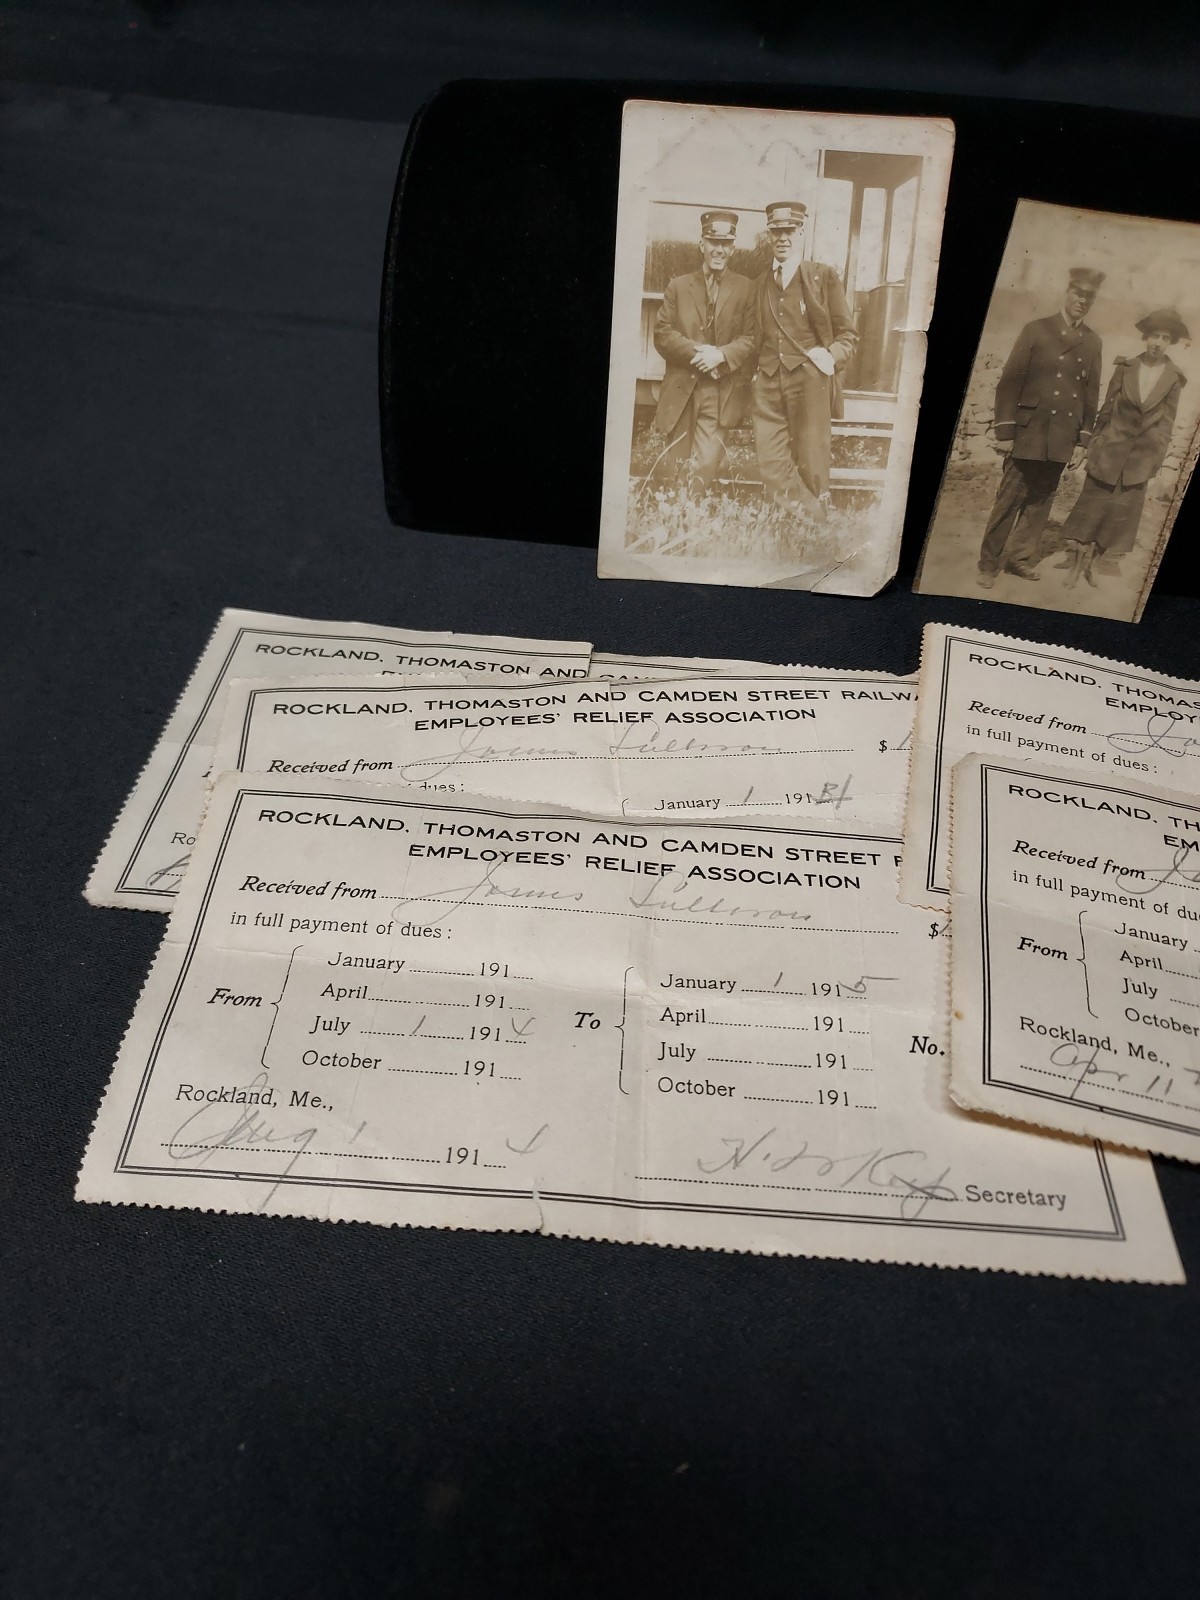 ROCKLAND, THOMASTON AND CAM
Ro
ROCKLAND, THOMASTON AND CAMDEN STREET RAILWA
EMPLOYEES' RELIEF ASSOCIATION
Received from James Sullivan $
dues:
January 1 191
ROCKLAND, THOMASTON AND CAMDEN STREET R
EMPLOYEES' RELIEF ASSOCIATION
Received from James Sullivan $
in full payment of dues:
From
January 191
April 191
July 1 1914
October 191
To
January 1 1915
April 191
July 191
October 191
No.
Rockland, Me.,
Aug 1 1914
Secretary
ROCKLAND, THOMAS
EMPLOY
Received from
in full payment of dues:
ROCKLAND, TH
EM
Received from
in full payment of due
From
January
April
July
October
Rockland, Me.,
Apr 11